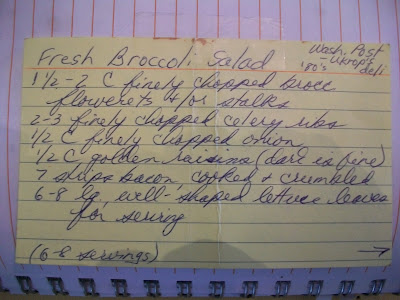 Fresh Broccoli Salad
Wash. Post
- Ukrop's
'80's deli
1 1/2 - 2 C finely chopped brocc
flowerets +/or stalks
2-3 finely chopped celery ribs
1/2 C finely chopped onion
1/2 C golden raisins (dark is fine)
7 strips bacon, cooked + crumbled
6-8 lg, well-shaped lettuce leaves
for serving
(6-8 servings) →